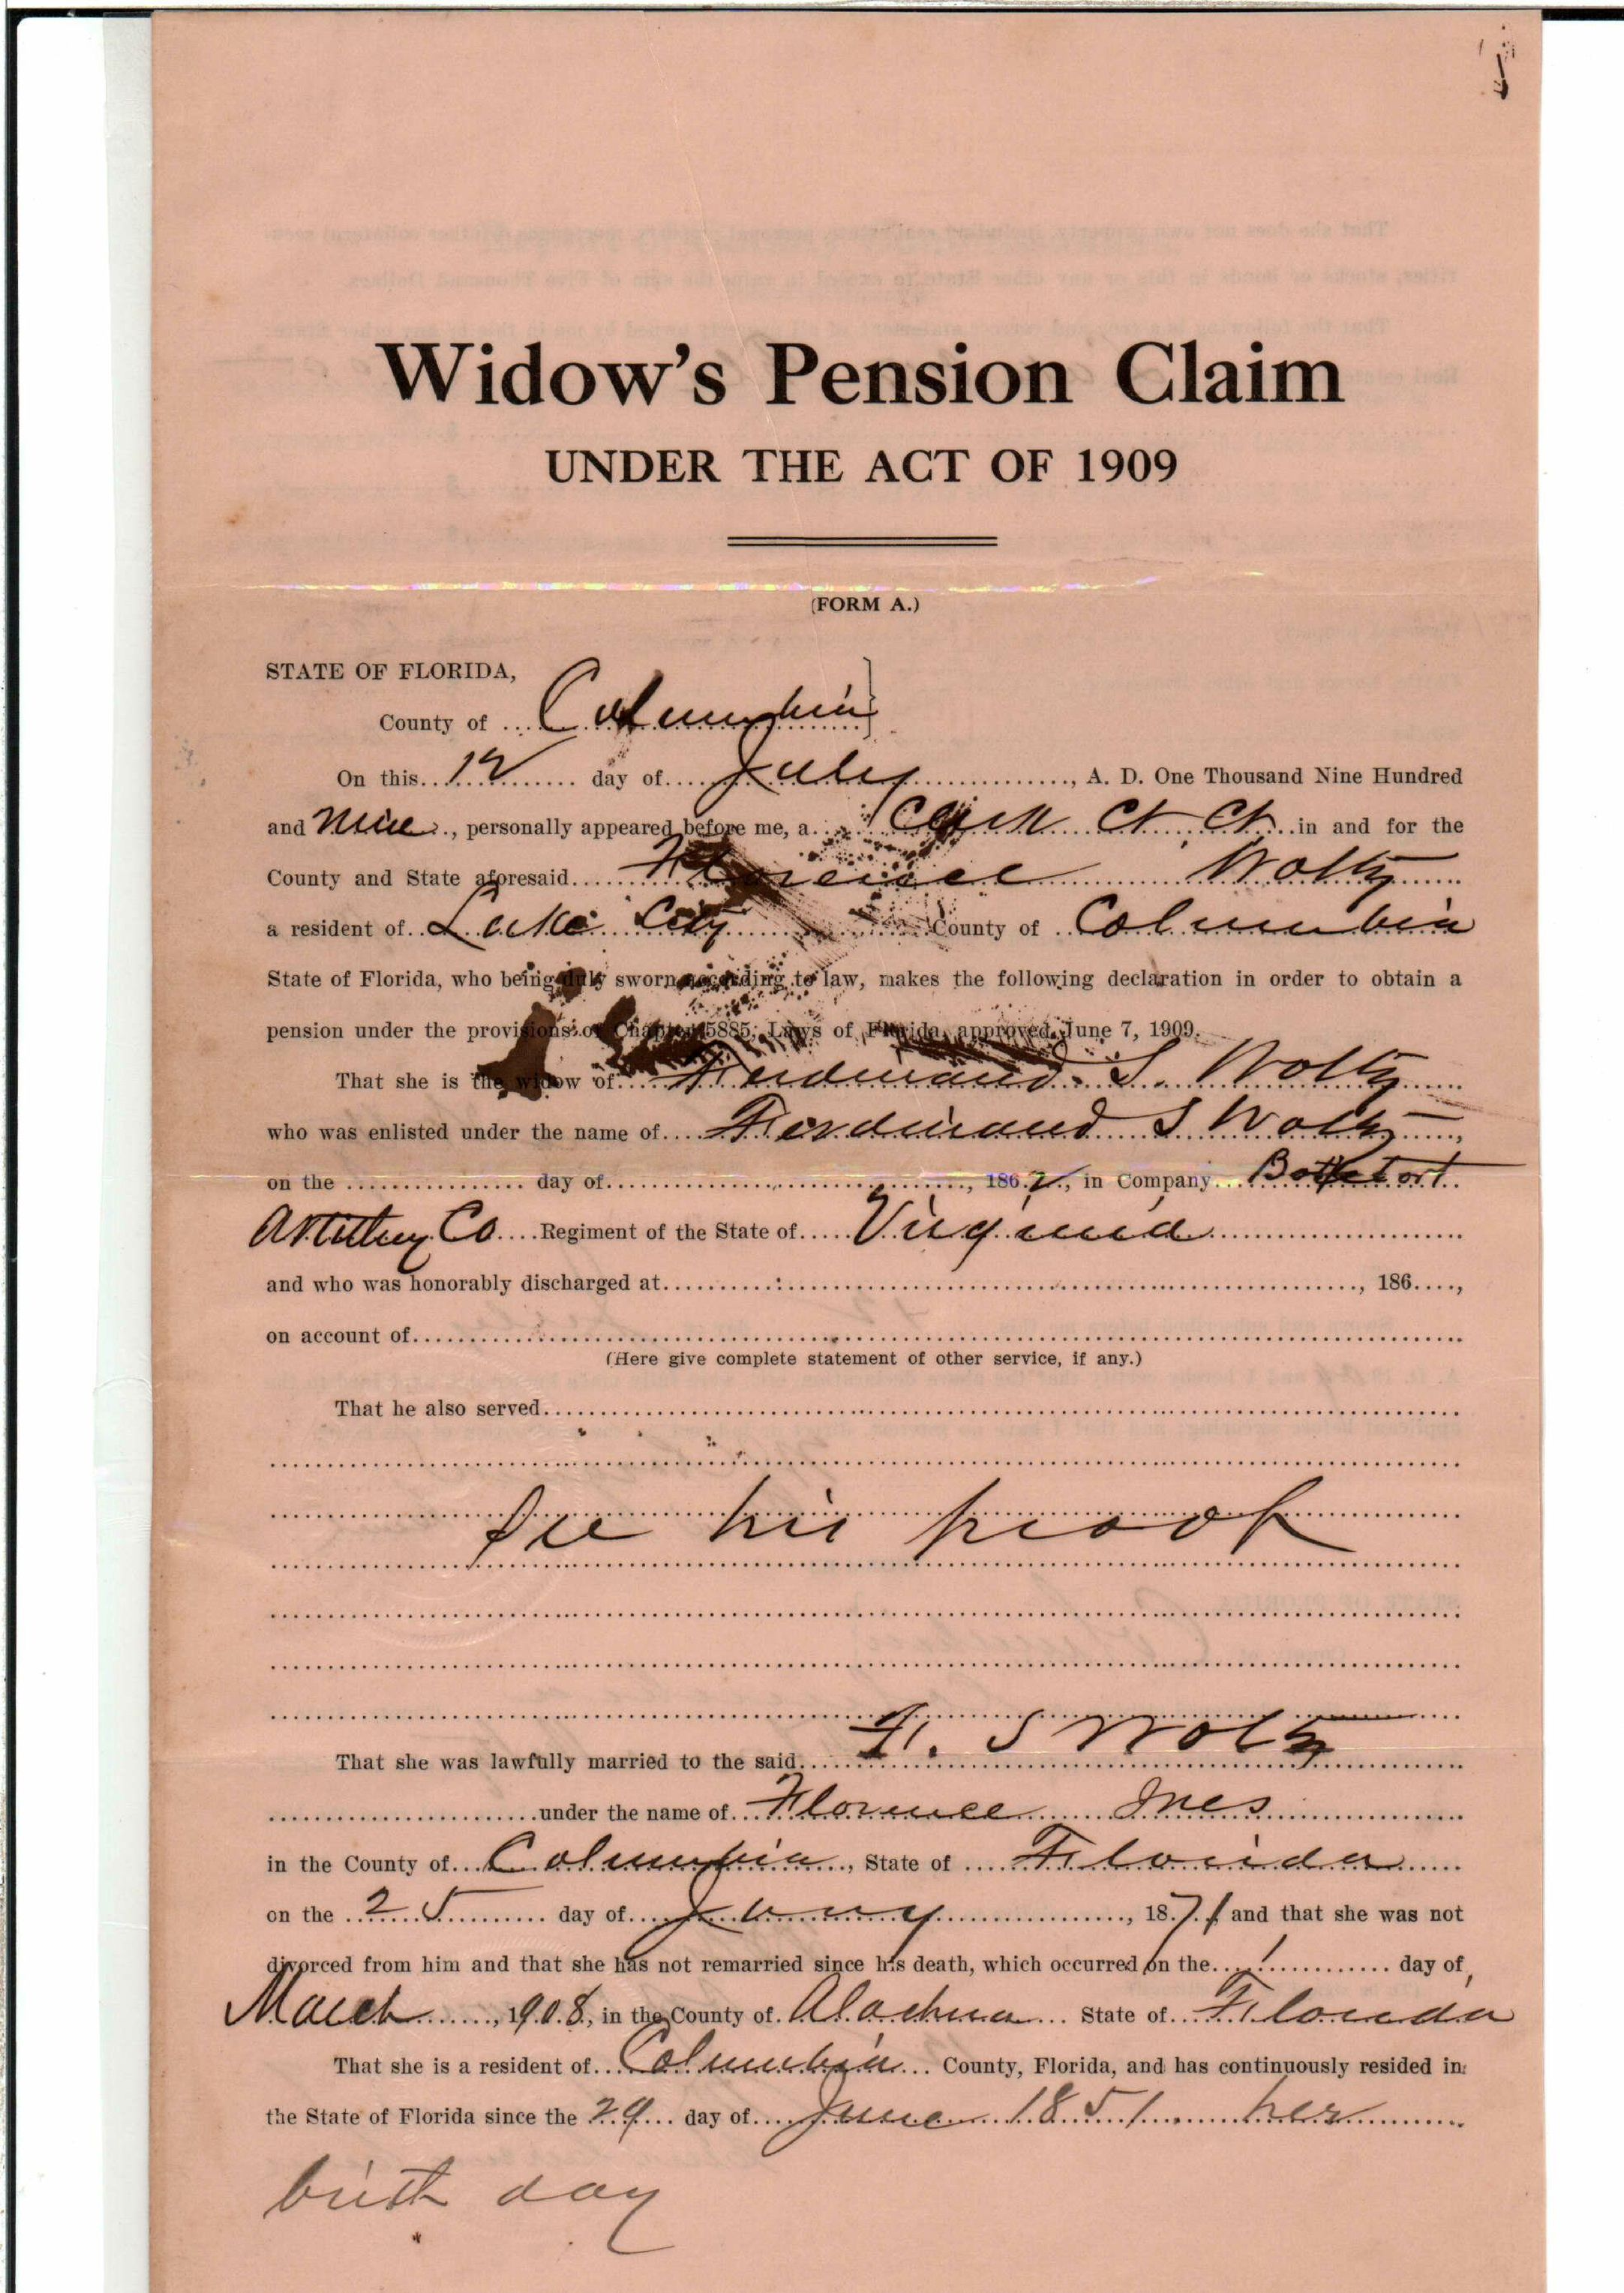 Widow's Pension Claim
UNDER THE ACT OF 1909
(FORM A.)
STATE OF FLORIDA,
County of Columbia
On this 12 day of July, A. D. One Thousand Nine Hundred
and nine, personally appeared before me, a Clerk Ct Ct in and for the
County and State aforesaid Florence Woltz
a resident of Lake City County of Columbia
State of Florida, who being duly sworn according to law, makes the following declaration in order to obtain a
pension under the provisions of Chapter 5885, Laws of Florida, approved June 7, 1909.
That she is the widow of Ferdinand S. Woltz
who was enlisted under the name of Ferdinand S Woltz,
on the day of , 1862, in Company Botetort
Artillery Co Regiment of the State of Virginia
and who was honorably discharged at , 186 ,
on account of
(Here give complete statement of other service, if any.)
That he also served
See his proof
That she was lawfully married to the said F. S Woltz
under the name of Florence Ives
in the County of Columbia, State of Florida
on the 25 day of Jany, 1871 and that she was not
divorced from him and that she has not remarried since his death, which occurred on the 1 day of
March, 1908, in the County of Alachua State of Florida
That she is a resident of Columbia County, Florida, and has continuously resided in
the State of Florida since the 29 day of June 1851 her
birth day